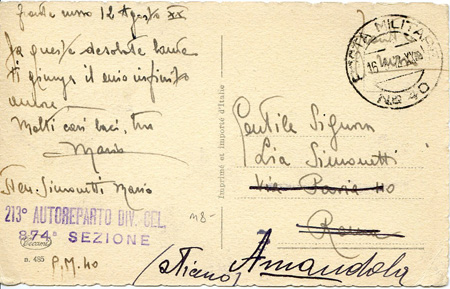 Fronte russo 12 Agosto XX
Da queste desolate lande
ti giunga il mio infinito
amore
Molti cari baci, tuo
Mario
Ten. Simonetti Mario
213° AUTOREPARTO DIV. CEL.
874a SEZIONE
n. 485
P.M. 40
m8-
Imprimé et importé d'Italie
POSTA MILITARE
N° 40
Gentile Signora
Lia Simonetti
Via Pavia 40
Roma
Amandola